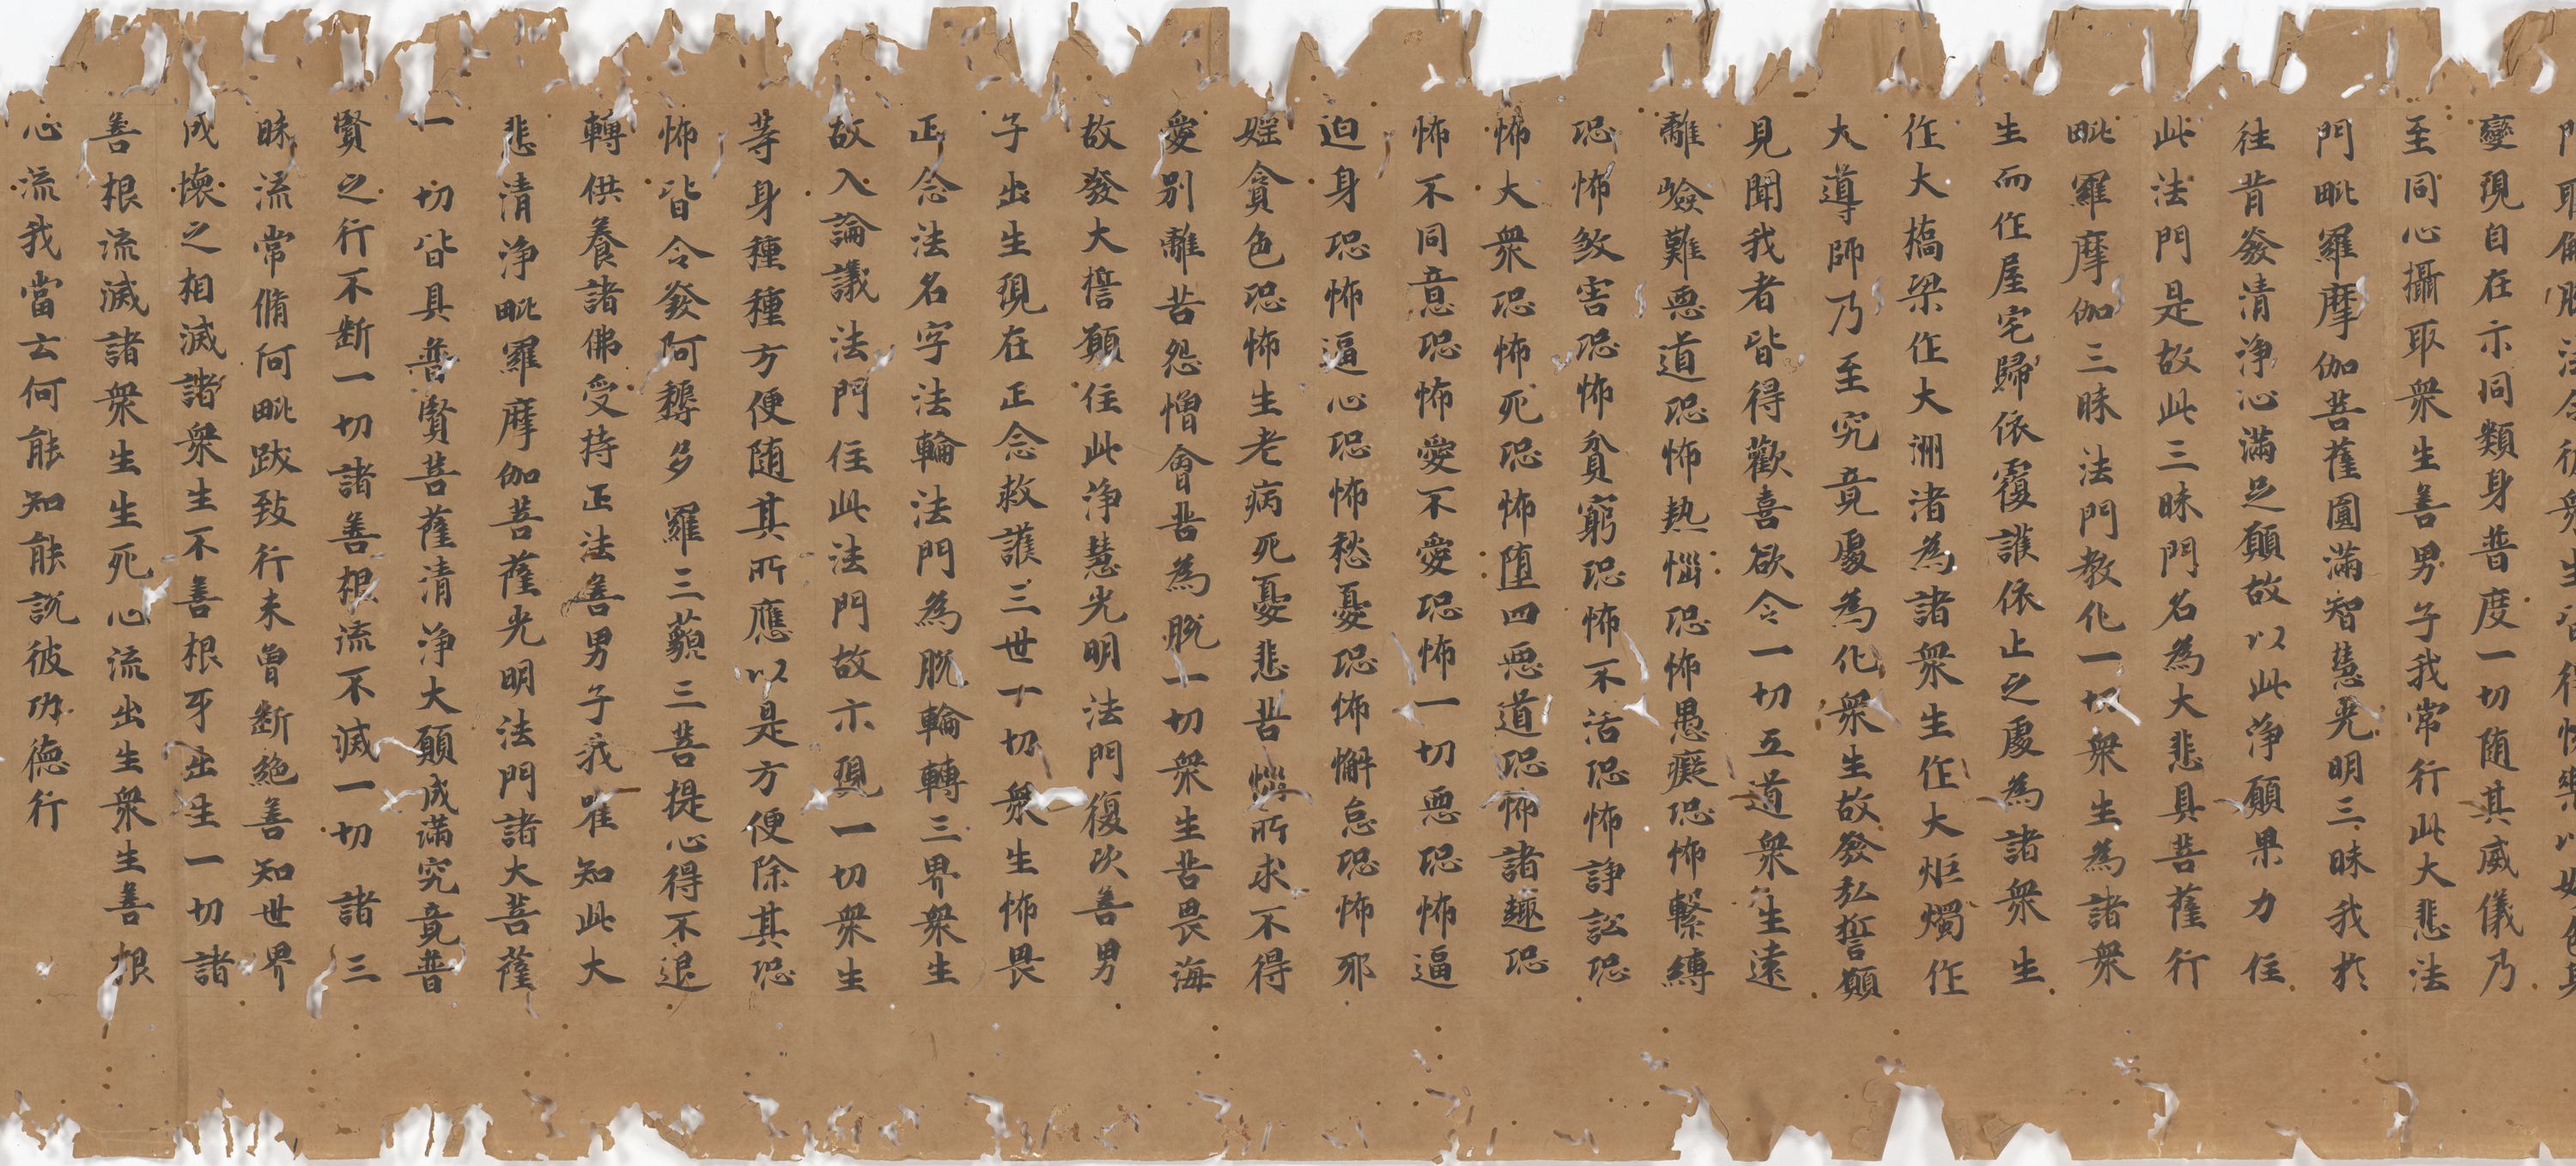 變現自在示同類身普度一切随其威儀乃
至同心攝取衆生善男子我常行此大悲法
門毗羅摩伽菩薩圓滿智慧光明三昧我於
往昔發清淨心滿足願故以此淨願果力住
此法門是故此三昧門名為大悲具菩薩行
毗羅摩伽三昧法門教化一切衆生為諸衆
生而作屋宅歸依覆護依止之處為諸衆生
作大橋梁作大洲渚為諸衆生作大炬燭作
大導師乃至究竟處為化衆生故發弘誓願
見聞我者皆得歡喜欲令一切五道衆生遠
離嶮難惡道恐怖熱惱恐怖愚癡恐怖繫縛
恐怖煞害恐怖貧窮恐怖不活恐怖諍訟恐
怖大衆恐怖死恐怖墮四惡道恐怖諸趣恐
怖不同意恐怖愛不愛恐怖一切惡恐怖逼
迫身恐怖逼心恐怖愁憂恐怖懈怠恐怖邪
婬貪色恐怖生老病死憂悲苦惱所求不得
愛別離苦怨憎會苦為脫一切衆生苦畏海
故發大誓願住此淨慧光明法門復次善男
子出生現在正念救護三世一切衆生怖畏
正念法名字法輪法門為脫輪轉三界衆生
故入論議法門住此法門故示現一切衆生
等身種種方便随其所應以是方便除其恐
怖皆令發阿耨多羅三藐三菩提心得不退
轉供養諸佛受持正法善男子我唯知此大
悲清淨毗羅摩伽菩薩光明法門諸大菩薩
一切皆具普賢菩薩清淨大願成滿究竟普
賢之行不断一切諸善根流不滅一切諸三
昧流常脩何毗跋致行未曾断絕善知世界
成壞之相滅諸衆生不善根牙出生一切諸
善根流滅諸衆生生死心流出生衆生善根
心流我當云何能知能說彼功德行